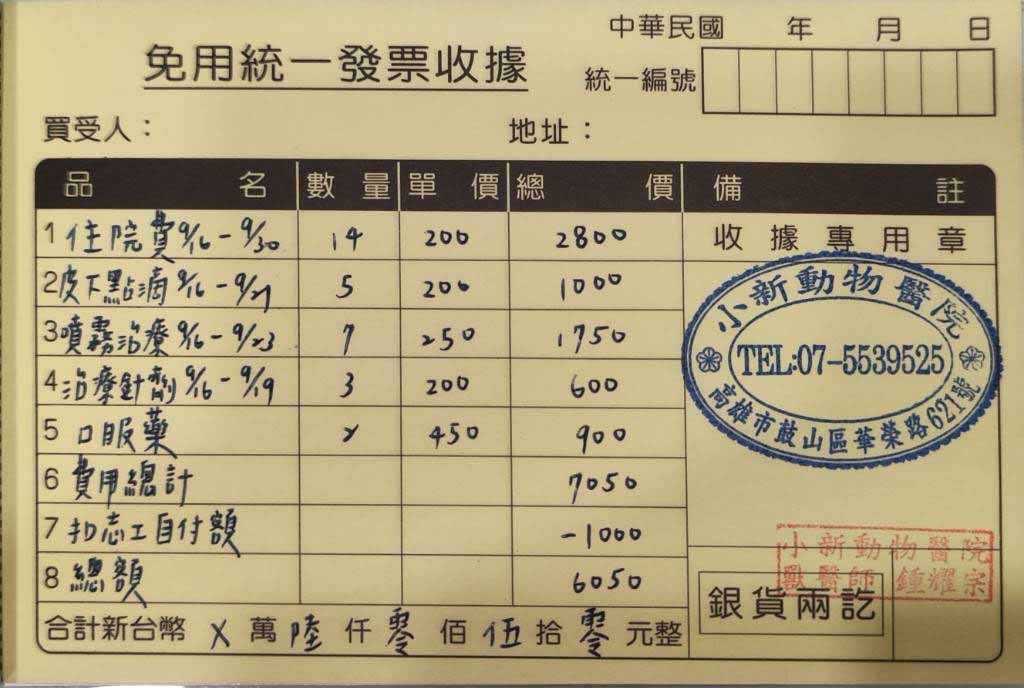 中華民國 年 月 日
免用統一發票收據
統一編號
買受人： 地址：
品名 數量 單價 總價 備註
1 住院費 9/16-9/30 14 200 2800 收據專用章
2 皮下點滴 9/16-9/21 5 200 1000
3 噴霧治療 9/16-9/23 7 250 1750
4 治療針劑 9/16-9/19 3 200 600
5 口服藥 2 450 900
6 費用總計 7050
7 扣志工自付額 -1000
8 總額 6050
小新動物醫院
TEL:07-5539525
高雄市鼓山區華榮路621號
小新動物醫院
獸醫師 鍾耀宗
銀貨兩訖
合計新台幣 X 萬 陸 仟 零 佰 伍 拾 零 元整